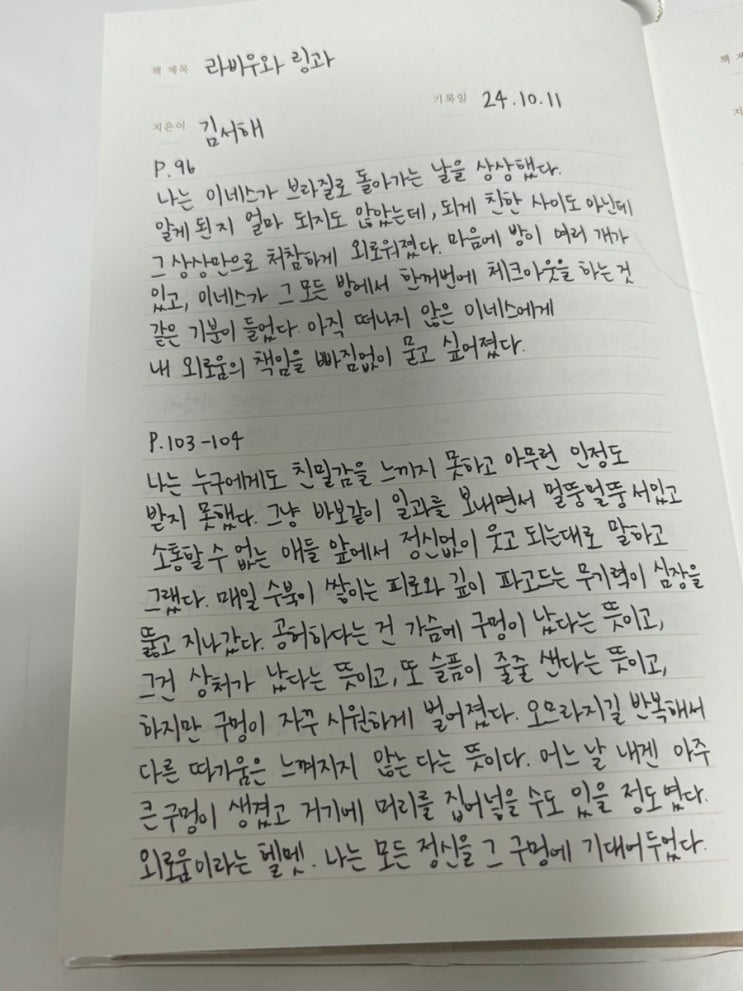 책 제목 라비우와 링과
기록일 24.10.11
지은이 김서해
P.96
나는 이네스가 브라질로 돌아가는 날을 상상했다.
알게 된지 얼마 되지도 않았는데, 되게 친한 사이도 아닌데
그 상상만으로 처참하게 외로워졌다. 마음에 방이 여러 개가
있고, 이네스가 그 모든 방에서 한꺼번에 체크아웃을 하는 것
같은 기분이 들었다. 아직 떠나지 않은 이네스에게
내 외로움의 책임을 빠짐없이 물고 싶어졌다.
P.103-104
나는 누구에게도 친밀감을 느끼지 못하고 아무런 인정도
받지 못했다. 그냥 바보같이 일과를 보내면서 멀뚱멀뚱 서있고
소통할 수 없는 애들 앞에서 정신없이 웃고 되는대로 말하고
그랬다. 매일 수북이 쌓이는 피로와 깊이 파고드는 무기력이 심장을
뚫고 지나갔다. 공허하다는 건 가슴에 구멍이 났다는 뜻이고,
그건 상처가 났다는 뜻이고, 또 슬픔이 줄줄 샌다는 뜻이고,
하지만 구멍이 자꾸 시원하게 벌어졌다. 오므라지길 반복해서
다른 따가움은 느껴지지 않는다는 뜻이다. 어느 날 내겐 아주
큰 구멍이 생겼고 거기에 머리를 집어넣을 수도 있을 정도였다.
외로움이라는 헬멧. 나는 모든 정신을 그 구멍에 기대어두었다.
책 제
지